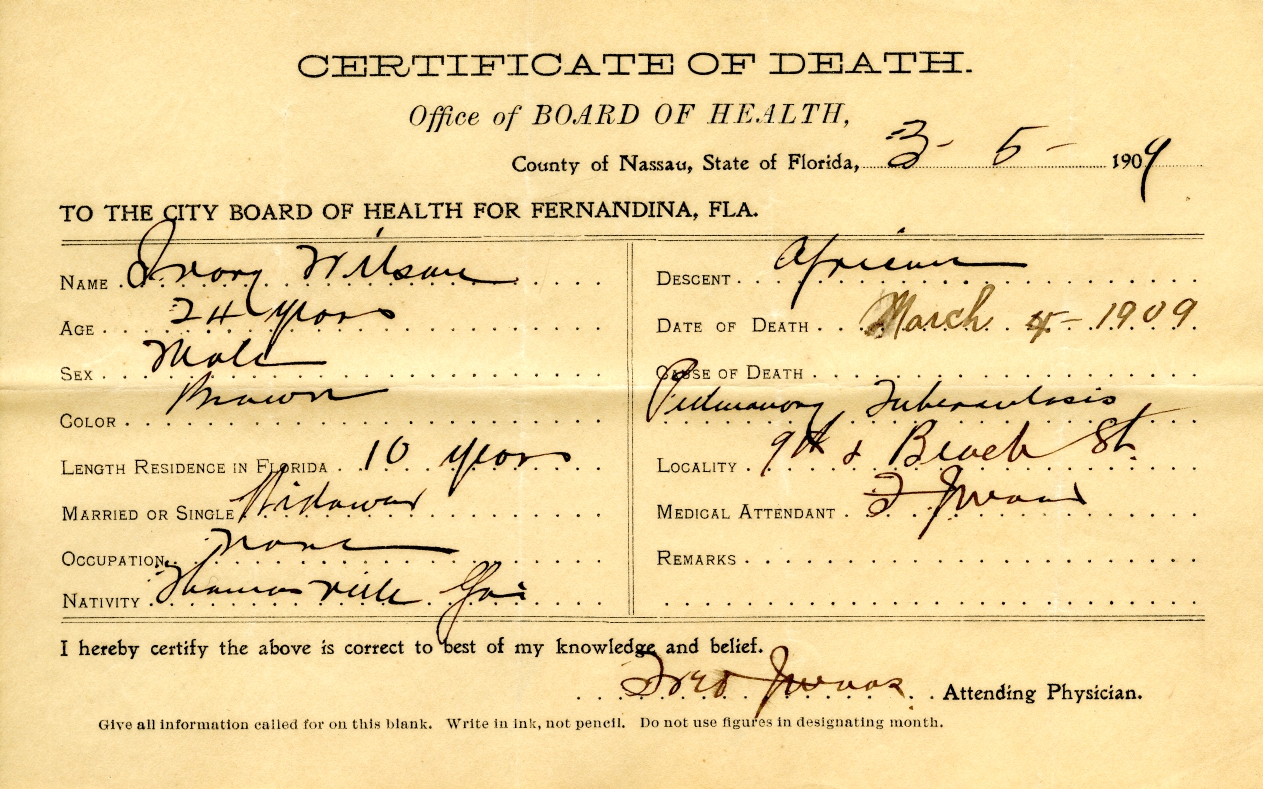 CERTIFICATE OF DEATH.
Office of BOARD OF HEALTH,
County of Nassau, State of Florida, 3-5- 1909
TO THE CITY BOARD OF HEALTH FOR FERNANDINA, FLA.
NAME Ivory Wilson
AGE 24 years
SEX Male
COLOR Brown
LENGTH RESIDENCE IN FLORIDA 10 years
MARRIED OR SINGLE Widower
OCCUPATION none
NATIVITY Thomasville Ga
DESCENT African
DATE OF DEATH March 4-1909
CAUSE OF DEATH
Pulmonary Tuberculosis
LOCALITY 9th & Beech St.
MEDICAL ATTENDANT
REMARKS
I hereby certify the above is correct to best of my knowledge and belief.
Attending Physician.
Give all information called for on this blank. Write in ink, not pencil. Do not use figures in designating month.